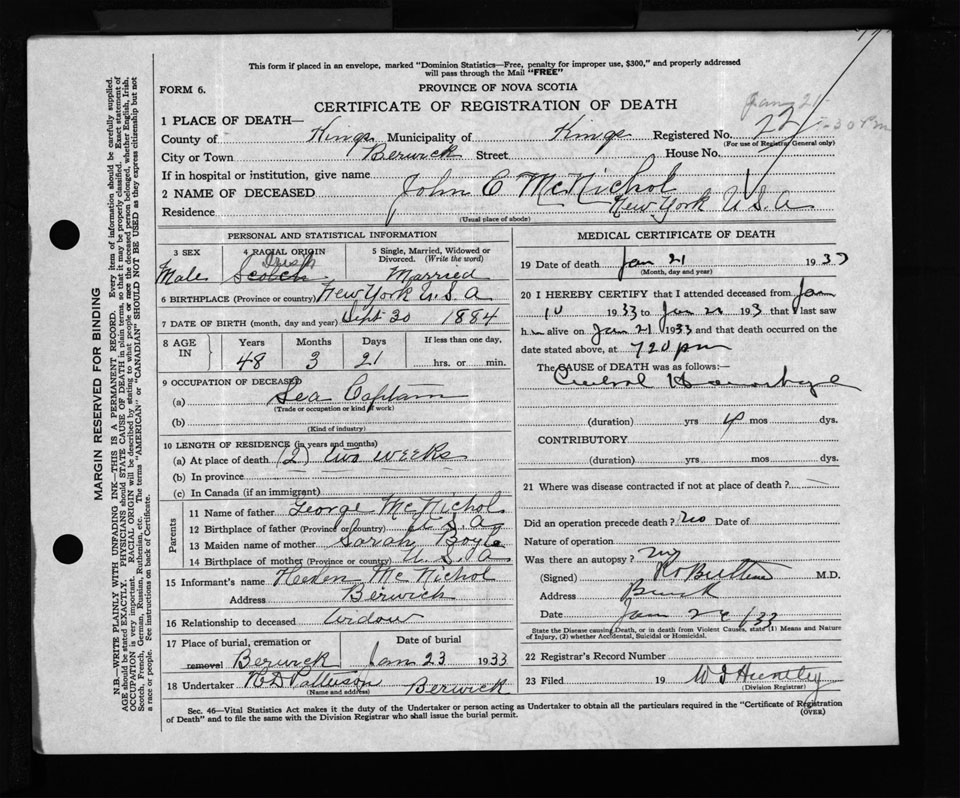 This form if placed in an envelope, marked "Dominion Statistics—Free, penalty for improper use, $300," and properly addressed
will pass through the Mail "FREE"
FORM 6.
PROVINCE OF NOVA SCOTIA
CERTIFICATE OF REGISTRATION OF DEATH
Jan 21
1 PLACE OF DEATH—
County of Kings Municipality of Kings Registered No. 22
(For use of Registrar General only)
City or Town Berwick Street House No.
If in hospital or institution, give name
2 NAME OF DECEASED John C McNichol
Residence New York U.S.A
(Usual place of abode)
PERSONAL AND STATISTICAL INFORMATION
3 SEX 4 RACIAL ORIGIN 5 Single, Married, Widowed or Divorced. (Write the word)
Irish
Male Scotch Married
6 BIRTHPLACE (Province or country) New York U.S.A
7 DATE OF BIRTH (month, day and year) Sept 30 1884
8 AGE IN Years Months Days If less than one day,
48 3 21 hrs. or min.
9 OCCUPATION OF DECEASED
(a) Sea Captain
(Trade or occupation or kind of work)
(b)
(Kind of industry)
10 LENGTH OF RESIDENCE (in years and months)
(a) At place of death (2) two weeks
(b) In province
(c) In Canada (if an immigrant)
Parents
11 Name of father George McNichol
12 Birthplace of father (Province or country) U.S.A
13 Maiden name of mother Sarah Boyle
14 Birthplace of mother (Province or country) U.S.A
15 Informant's name Heelen McNichol
Address Berwick
16 Relationship to deceased Widow
17 Place of burial, cremation or removal Berwick Date of burial Jan 23 1933
18 Undertaker Pattison Berwick
(Name and address)
MEDICAL CERTIFICATE OF DEATH
19 Date of death Jan 21 1933
(Month, day and year)
20 I HEREBY CERTIFY that I attended deceased from Jan
10 1933 to Jan 21 193 that I last saw
him alive on Jan 21 1933 and that death occurred on the
date stated above, at 7 20 pm
The CAUSE OF DEATH was as follows:—
Cerebral Haemorrhage
(duration) yrs 4 mos dys.
CONTRIBUTORY
(duration) yrs mos dys.
21 Where was disease contracted if not at place of death?
Did an operation precede death? No Date of
Nature of operation
Was there an autopsy? No
(Signed) M.D.
Address
Date Jan
State the Disease causing Death, or in death from Violent Causes, state (1) Means and Nature
of Injury, (2) whether Accidental, Suicidal or Homicidal.
22 Registrar's Record Number
23 Filed 19 Huntley
(Division Registrar)
Sec. 46—Vital Statistics Act makes it the duty of the Undertaker or person acting as Undertaker to obtain all the particulars required in the "Certificate of Registration
of Death" and to file the same with the Division Registrar who shall issue the burial permit.
(OVER)
MARGIN RESERVED FOR BINDING
N.B.—WRITE PLAINLY WITH UNFADING INK—THIS IS A PERMANENT RECORD. Every item of information should be carefully supplied.
AGE should be stated EXACTLY. PHYSICIANS should STATE CAUSE OF DEATH in plain terms, so that it may be properly classified. Exact statement of
OCCUPATION is very important. RACIAL ORIGIN will be described by stating to what people or race the deceased person belonged, whether English, Irish,
Scotch, French, German, Russian, Ruthenian, etc. The terms "AMERICAN" or "CANADIAN" SHOULD NOT BE USED as they express citizenship but not
a race or people. See instructions on back of Certificate.